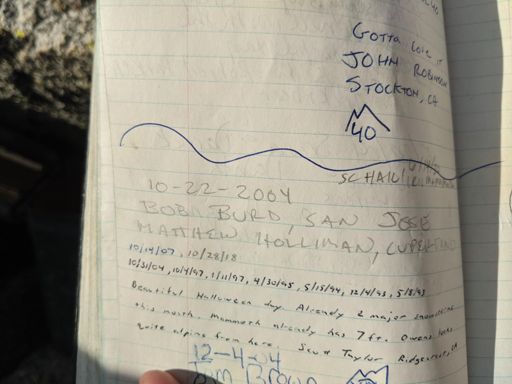 GOTTA LOVE IT
JOHN ROBINSON
STOCKTON, CA
40
10-22-2004
BOB BURD, SAN JOSE
MATTHEW HOLLIMAN, CUPERTINO
10/14/07, 10/28/18
10/31/04, 10/4/97, 1/11/97, 4/30/95, 5/15/94, 12/4/93, 5/8/93
Beautiful Halloween day. Already 2 major snowstorms
this month. Mammoth already has 7 ft. Owens looks
quite alpine from here. Scott Taylor Ridgecrest, CA
12-4-04
Jim Brown